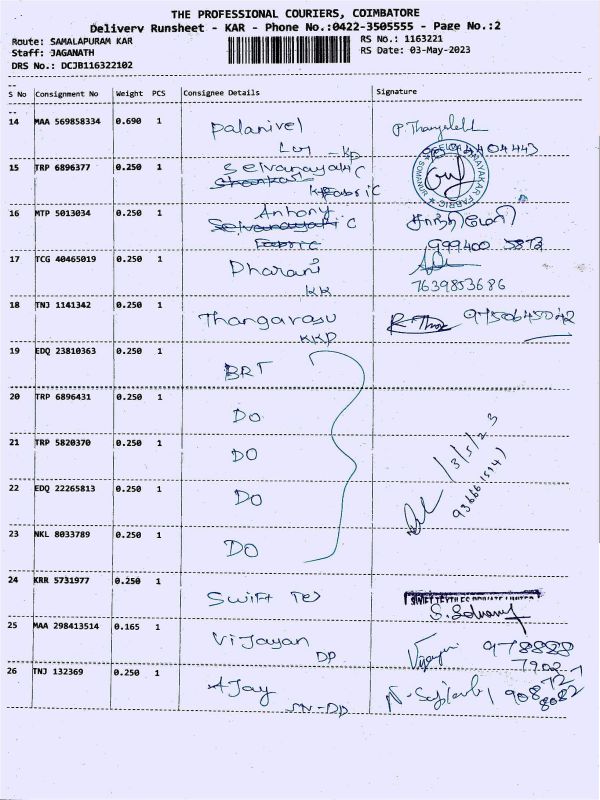 THE PROFESSIONAL COURIERS, COIMBATORE
Delivery Runsheet - KAR - Phone No.:0422-3505555 - Page No.:2
Route: SAMALAPURAM KAR
RS No.: 1163221
Staff: JAGANATH
RS Date: 03-May-2023
DRS No.: DCJB116322102
S No Consignment No Weight PCS Consignee Details Signature
14 MAA 569858334 0.690 1 Palanivel P. Thangavel
15 TRP 6896377 0.250 1 Selvanayaki C
KK Fabric
16 MTP 5013034 0.250 1 Antony
Selvanayaki C
Fabric
17 TCG 40465019 0.250 1 Dharani
KK 7639853686
18 TNJ 1141342 0.250 1 Thangarasu
KKP
19 EDQ 23810363 0.250 1 BRT
20 TRP 6896431 0.250 1 DO
21 TRP 5820370 0.250 1 DO
22 EDQ 22265813 0.250 1 DO
3/5/23
23 NKL 8033789 0.250 1 DO
24 KRR 5731977 0.250 1 Swift Tex
SWIFT TEXTILES PRIVATE LIMITED
25 MAA 298413514 0.165 1 Vijayan
DP
978888
7902
26 TNJ 132369 0.250 1 AJay
SN-DP